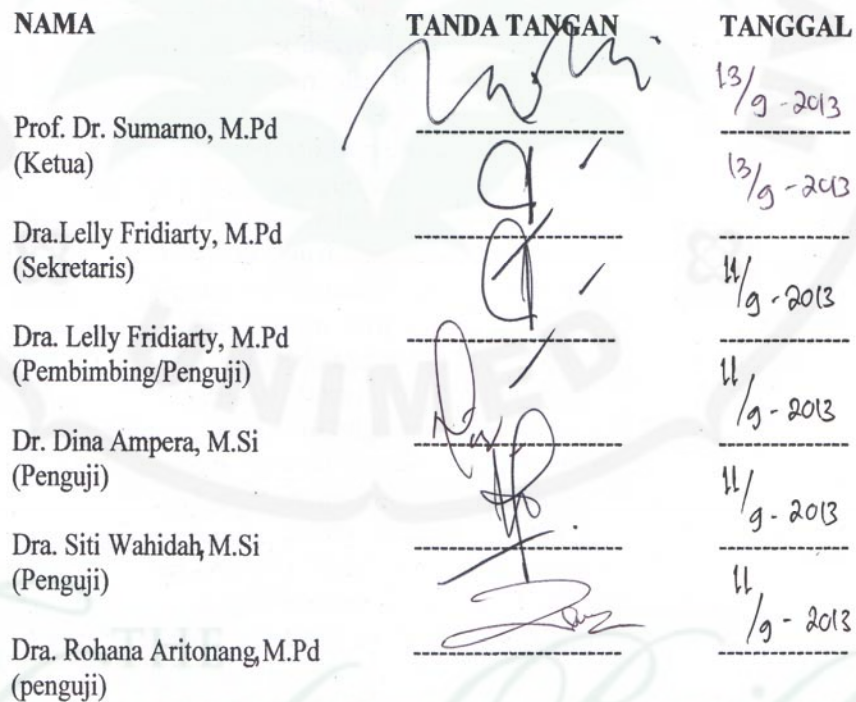 NAMA TANDA TANGAN TANGGAL
13/9 - 2013
Prof. Dr. Sumarno, M.Pd
(Ketua)
13/9 - 2013
Dra.Lelly Fridiarty, M.Pd
(Sekretaris)
11/9 - 2013
Dra. Lelly Fridiarty, M.Pd
(Pembimbing/Penguji)
11/9 - 2013
Dr. Dina Ampera, M.Si
(Penguji)
11/9 - 2013
Dra. Siti Wahidah, M.Si
(Penguji)
11/9 - 2013
Dra. Rohana Aritonang, M.Pd
(penguji)
UNIMED
THE